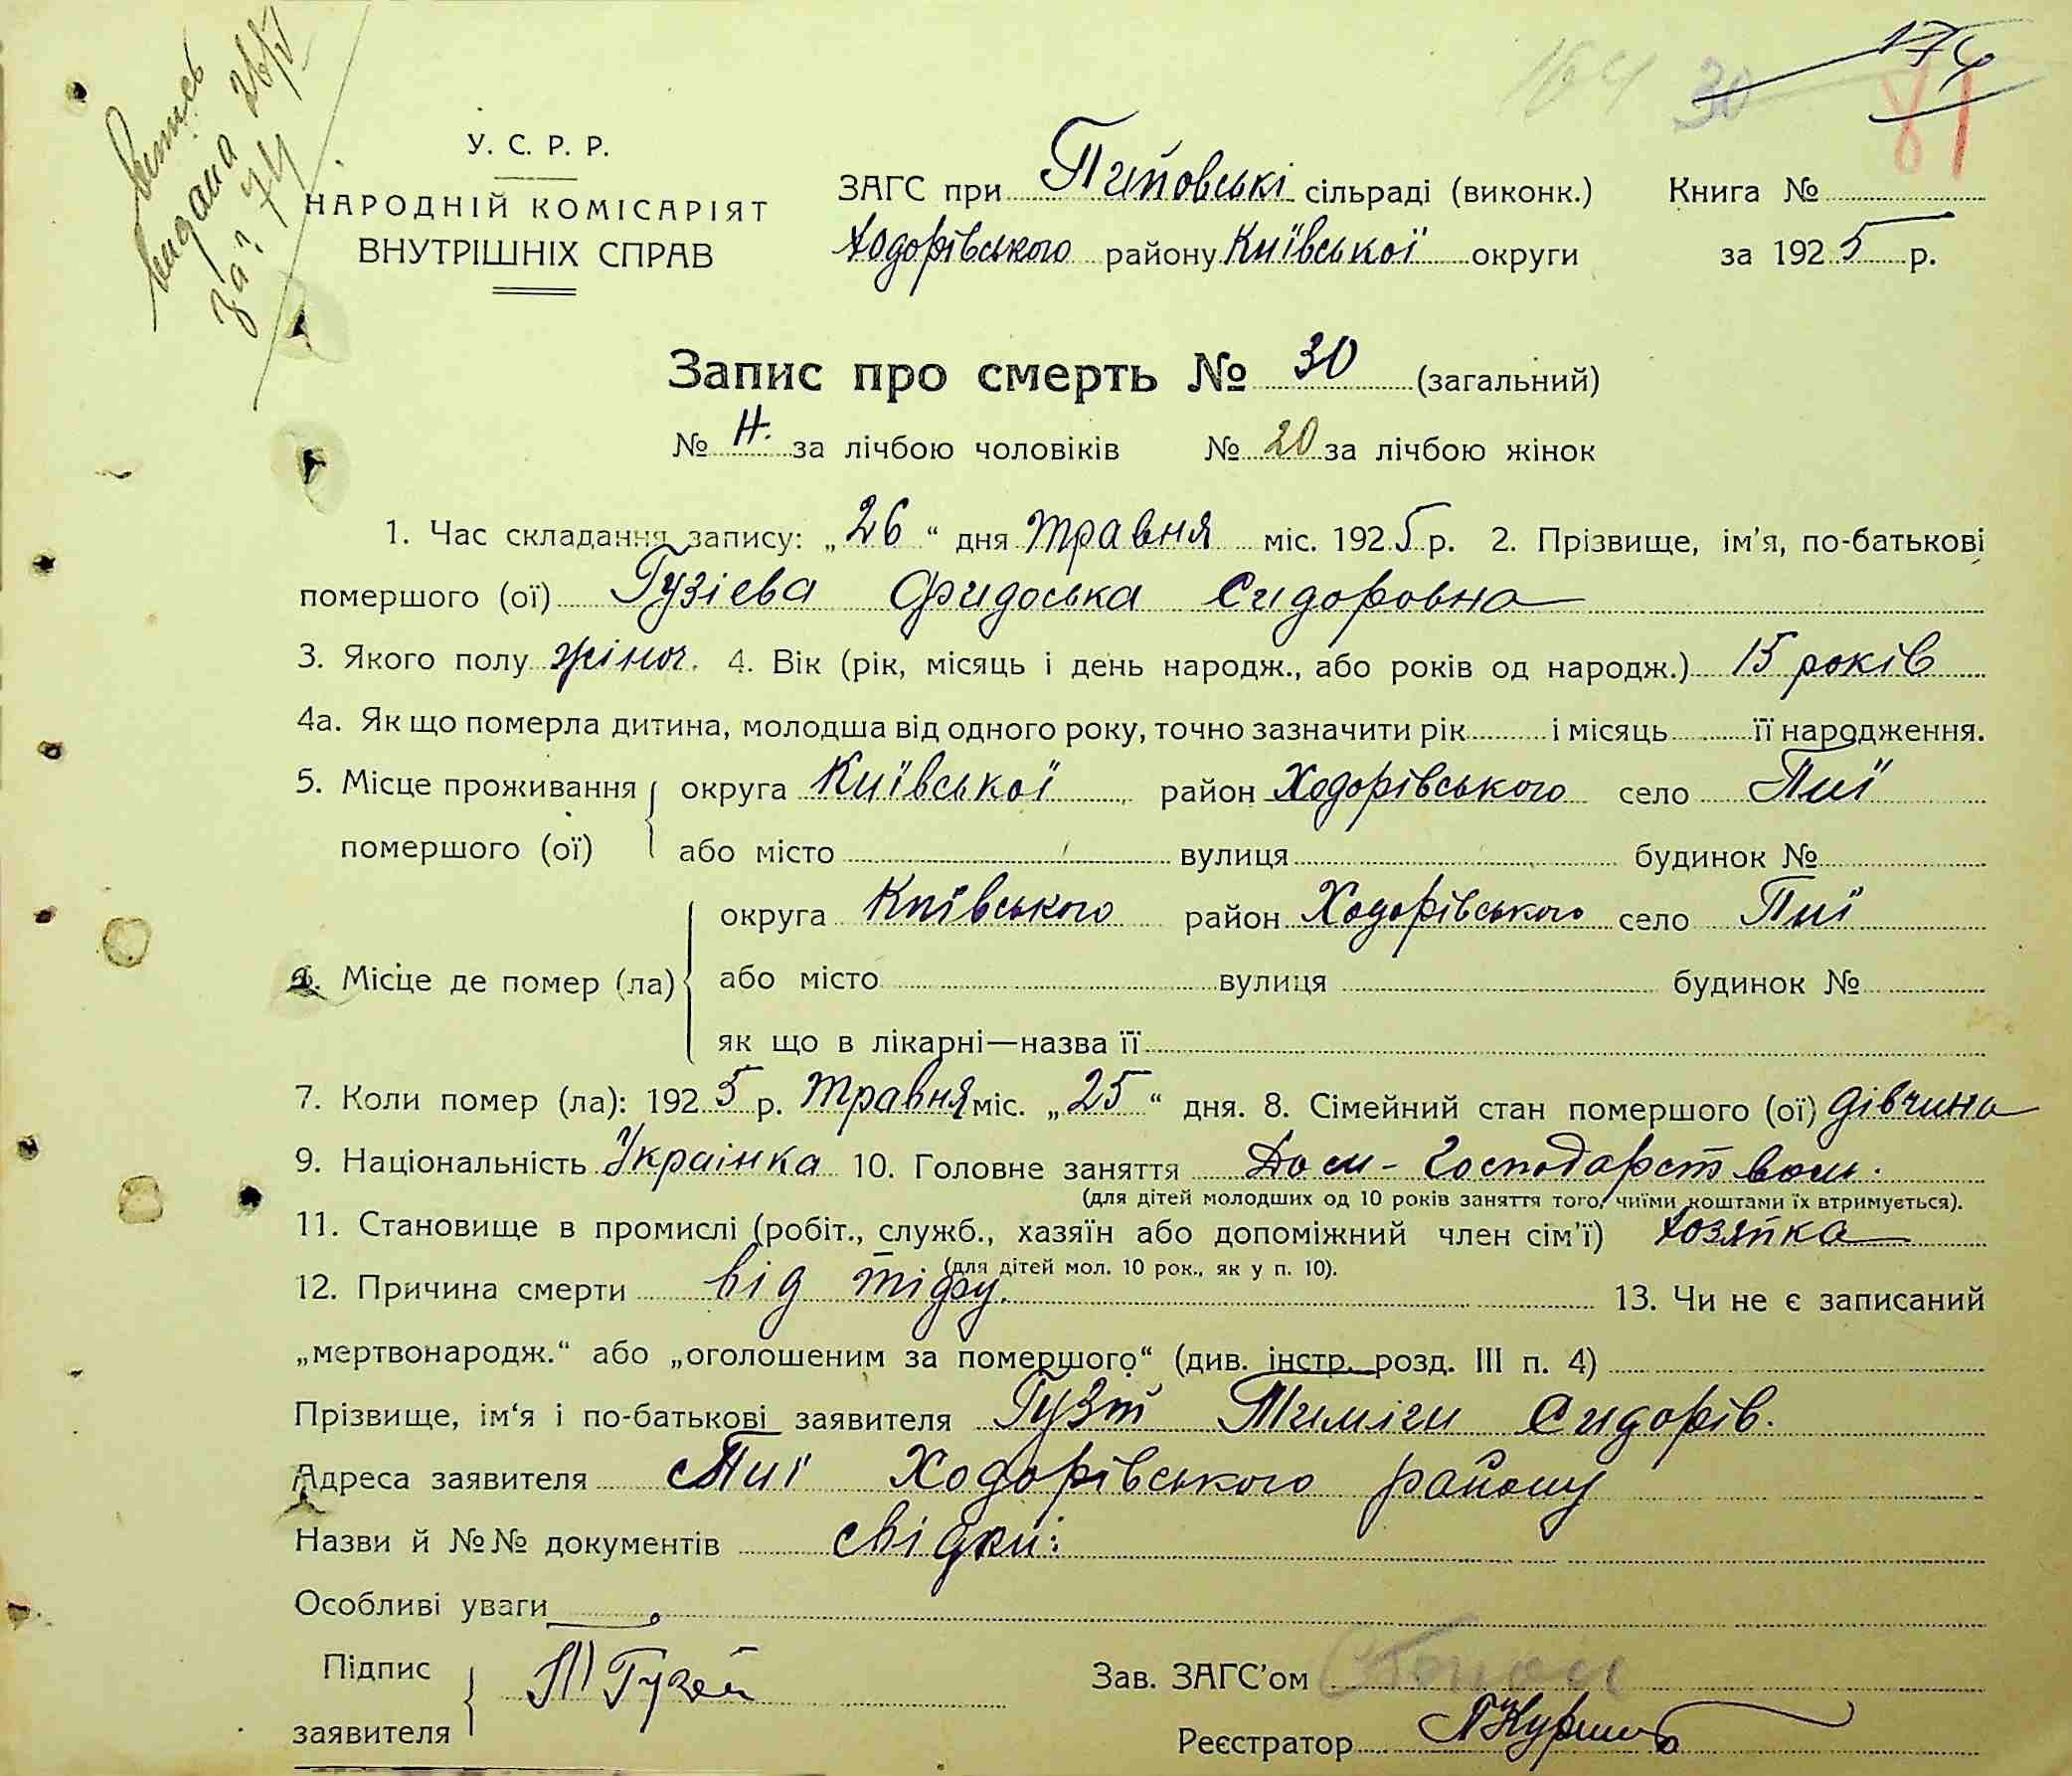 витяг
видана 26/V
за № 74
164 30 174 81
У. С. Р. Р.
НАРОДНІЙ КОМІСАРІЯТ
ВНУТРІШНІХ СПРАВ
ЗАГС при Пиїовські сільраді (виконк.) Книга №
Ходорівського району Київської округи за 1925 р.
Запис про смерть № 30 (загальний)
№ за лічбою чоловіків № 20 за лічбою жінок
1. Час складання запису: „26“ дня травня міс. 1925 р. 2. Прізвище, ім'я, по-батькові
помершого (ої) Гузієва Фидоська Сидоровна
3. Якого полу жіноч. 4. Вік (рік, місяць і день народж., або років од народж.) 15 років
4а. Як що померла дитина, молодша від одного року, точно зазначити рік і місяць її народження.
5. Місце проживання округа Київської район Ходорівського село Пиї
помершого (ої) або місто вулиця будинок №
округа Київського район Ходорівського село Пиї
6. Місце де помер (ла) або місто вулиця будинок №
як що в лікарні—назва її
7. Коли помер (ла): 1925 р. травня міс. „25“ дня. 8. Сімейний стан помершого (ої) дівчина
9. Національність Украінка 10. Головне заняття Дом-Господарством.
(для дітей молодших од 10 років заняття того, чиїми коштами їх втримується).
11. Становище в промислі (робіт., служб., хазяїн або допоміжний член сім'ї) хозяйка
(для дітей мол. 10 рок., як у п. 10).
12. Причина смерти від тіфу. 13. Чи не є записаний
„мертвонародж.“ або „оголошеним за помершого“ (див. інстр. розд. III п. 4)
Прізвище, ім'я і по-батькові заявителя Гузій Сидорів.
Адреса заявителя с Пиї Ходорівського району
Назви й №№ документів свідки:
Особливі уваги
Підпис
заявителя Т Гузей
Зав. ЗАГС'ом
Реєстратор